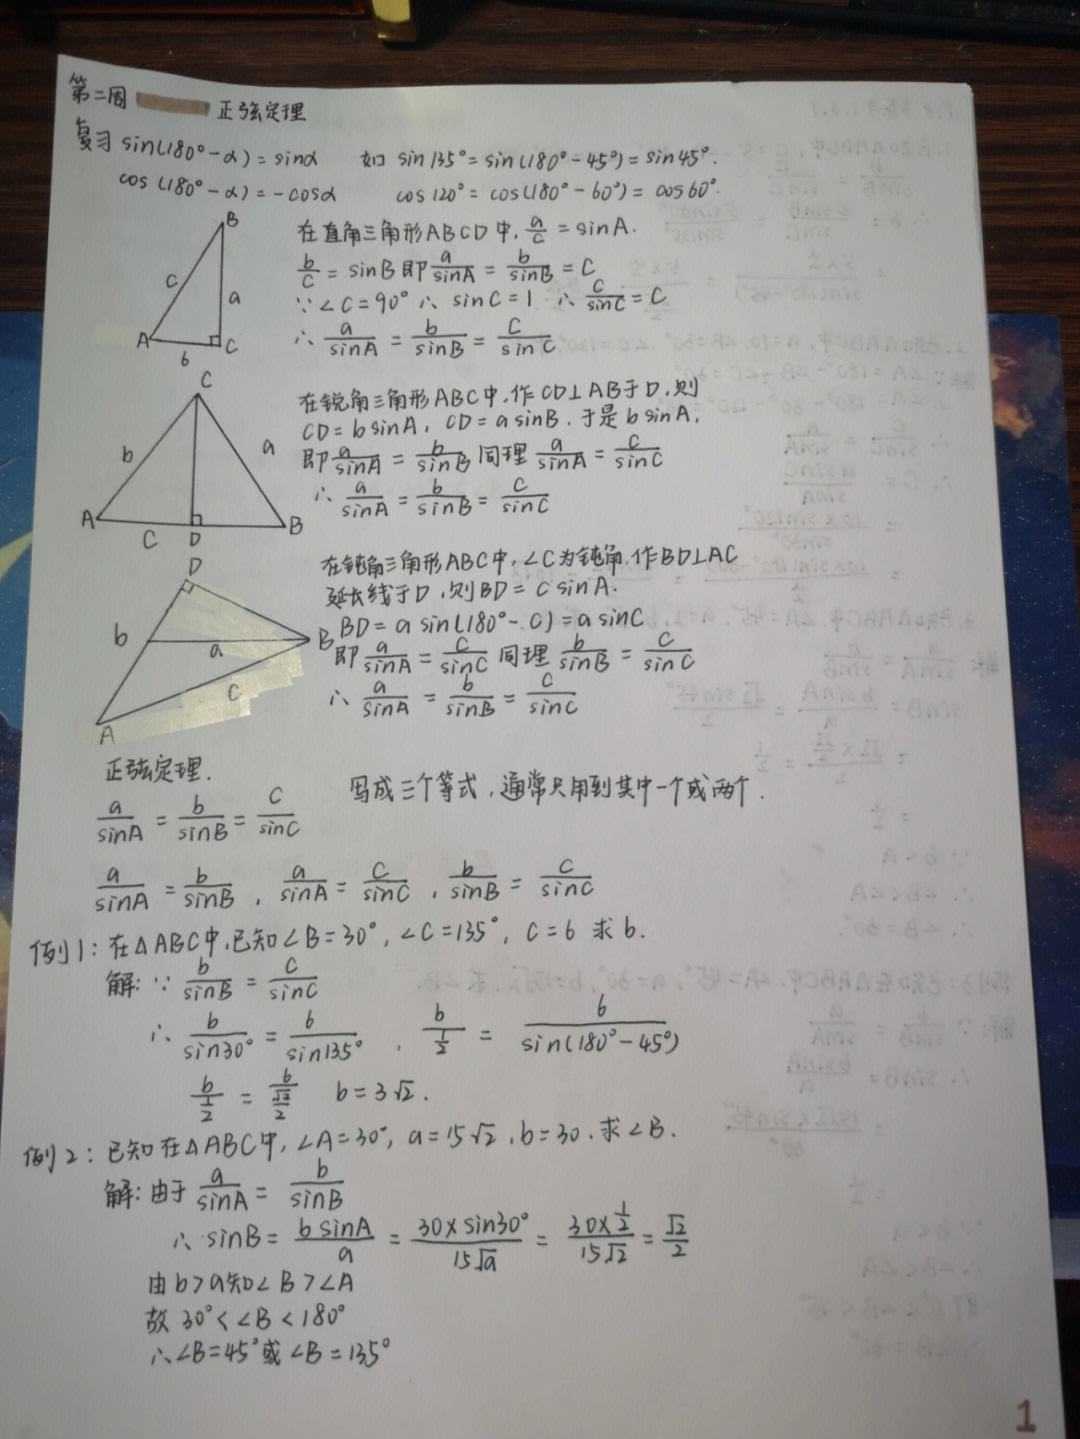 第二周 正弦定理
复习 sin(180°-α)=sinα 如 sin135°=sin(180°-45°)=sin45°.
cos(180°-α)=-cosα cos120°=cos(180°-60°)=cos60°.
B
c
a
A
b
C
在直角三角形ABCD中, a/c = sinA.
b/c = sinB 即 a/sinA = b/sinB = C
∵∠C=90° ∴ sinC=1 ∴ C/sinC = C
∴ a/sinA = b/sinB = C/sinC
C
b
a
A
C
D
B
在锐角三角形ABC中,作CD⊥AB于D,则
CD=bsinA, CD=asinB.于是bsinA,
即 a/sinA = b/sinB 同理 a/sinA = C/sinC
∴ a/sinA = b/sinB = C/sinC
D
b
a
B
c
A
在钝角三角形ABC中,∠C为钝角.作BD⊥AC
延长线于D,则BD=CsinA.
BD=asin(180°-C)=asinC
即 a/sinA = C/sinC 同理 b/sinB = C/sinC
∴ a/sinA = b/sinB = C/sinC
正弦定理.
写成三个等式,通常只用到其中一个或两个.
a/sinA = b/sinB = C/sinC
a/sinA = b/sinB , a/sinA = C/sinC , b/sinB = C/sinC
例1:在△ABC中,已知∠B=30°,∠C=135°, C=6 求b.
解:∵ b/sinB = C/sinC
∴ b/sin30° = 6/sin135° , b/(1/2) = 6/sin(180°-45°)
b/(1/2) = 6/(√2/2) b=3√2.
例2:已知在△ABC中,∠A=30°, a=15√2,b=30.求∠B.
解:由于 a/sinA = b/sinB
∴ sinB = bsinA/a = 30×sin30°/15√a = 30×1/2/15√2 = √2/2
由b>a知∠B>∠A
故30°<∠B<180°
∴∠B=45°或∠B=135°
1